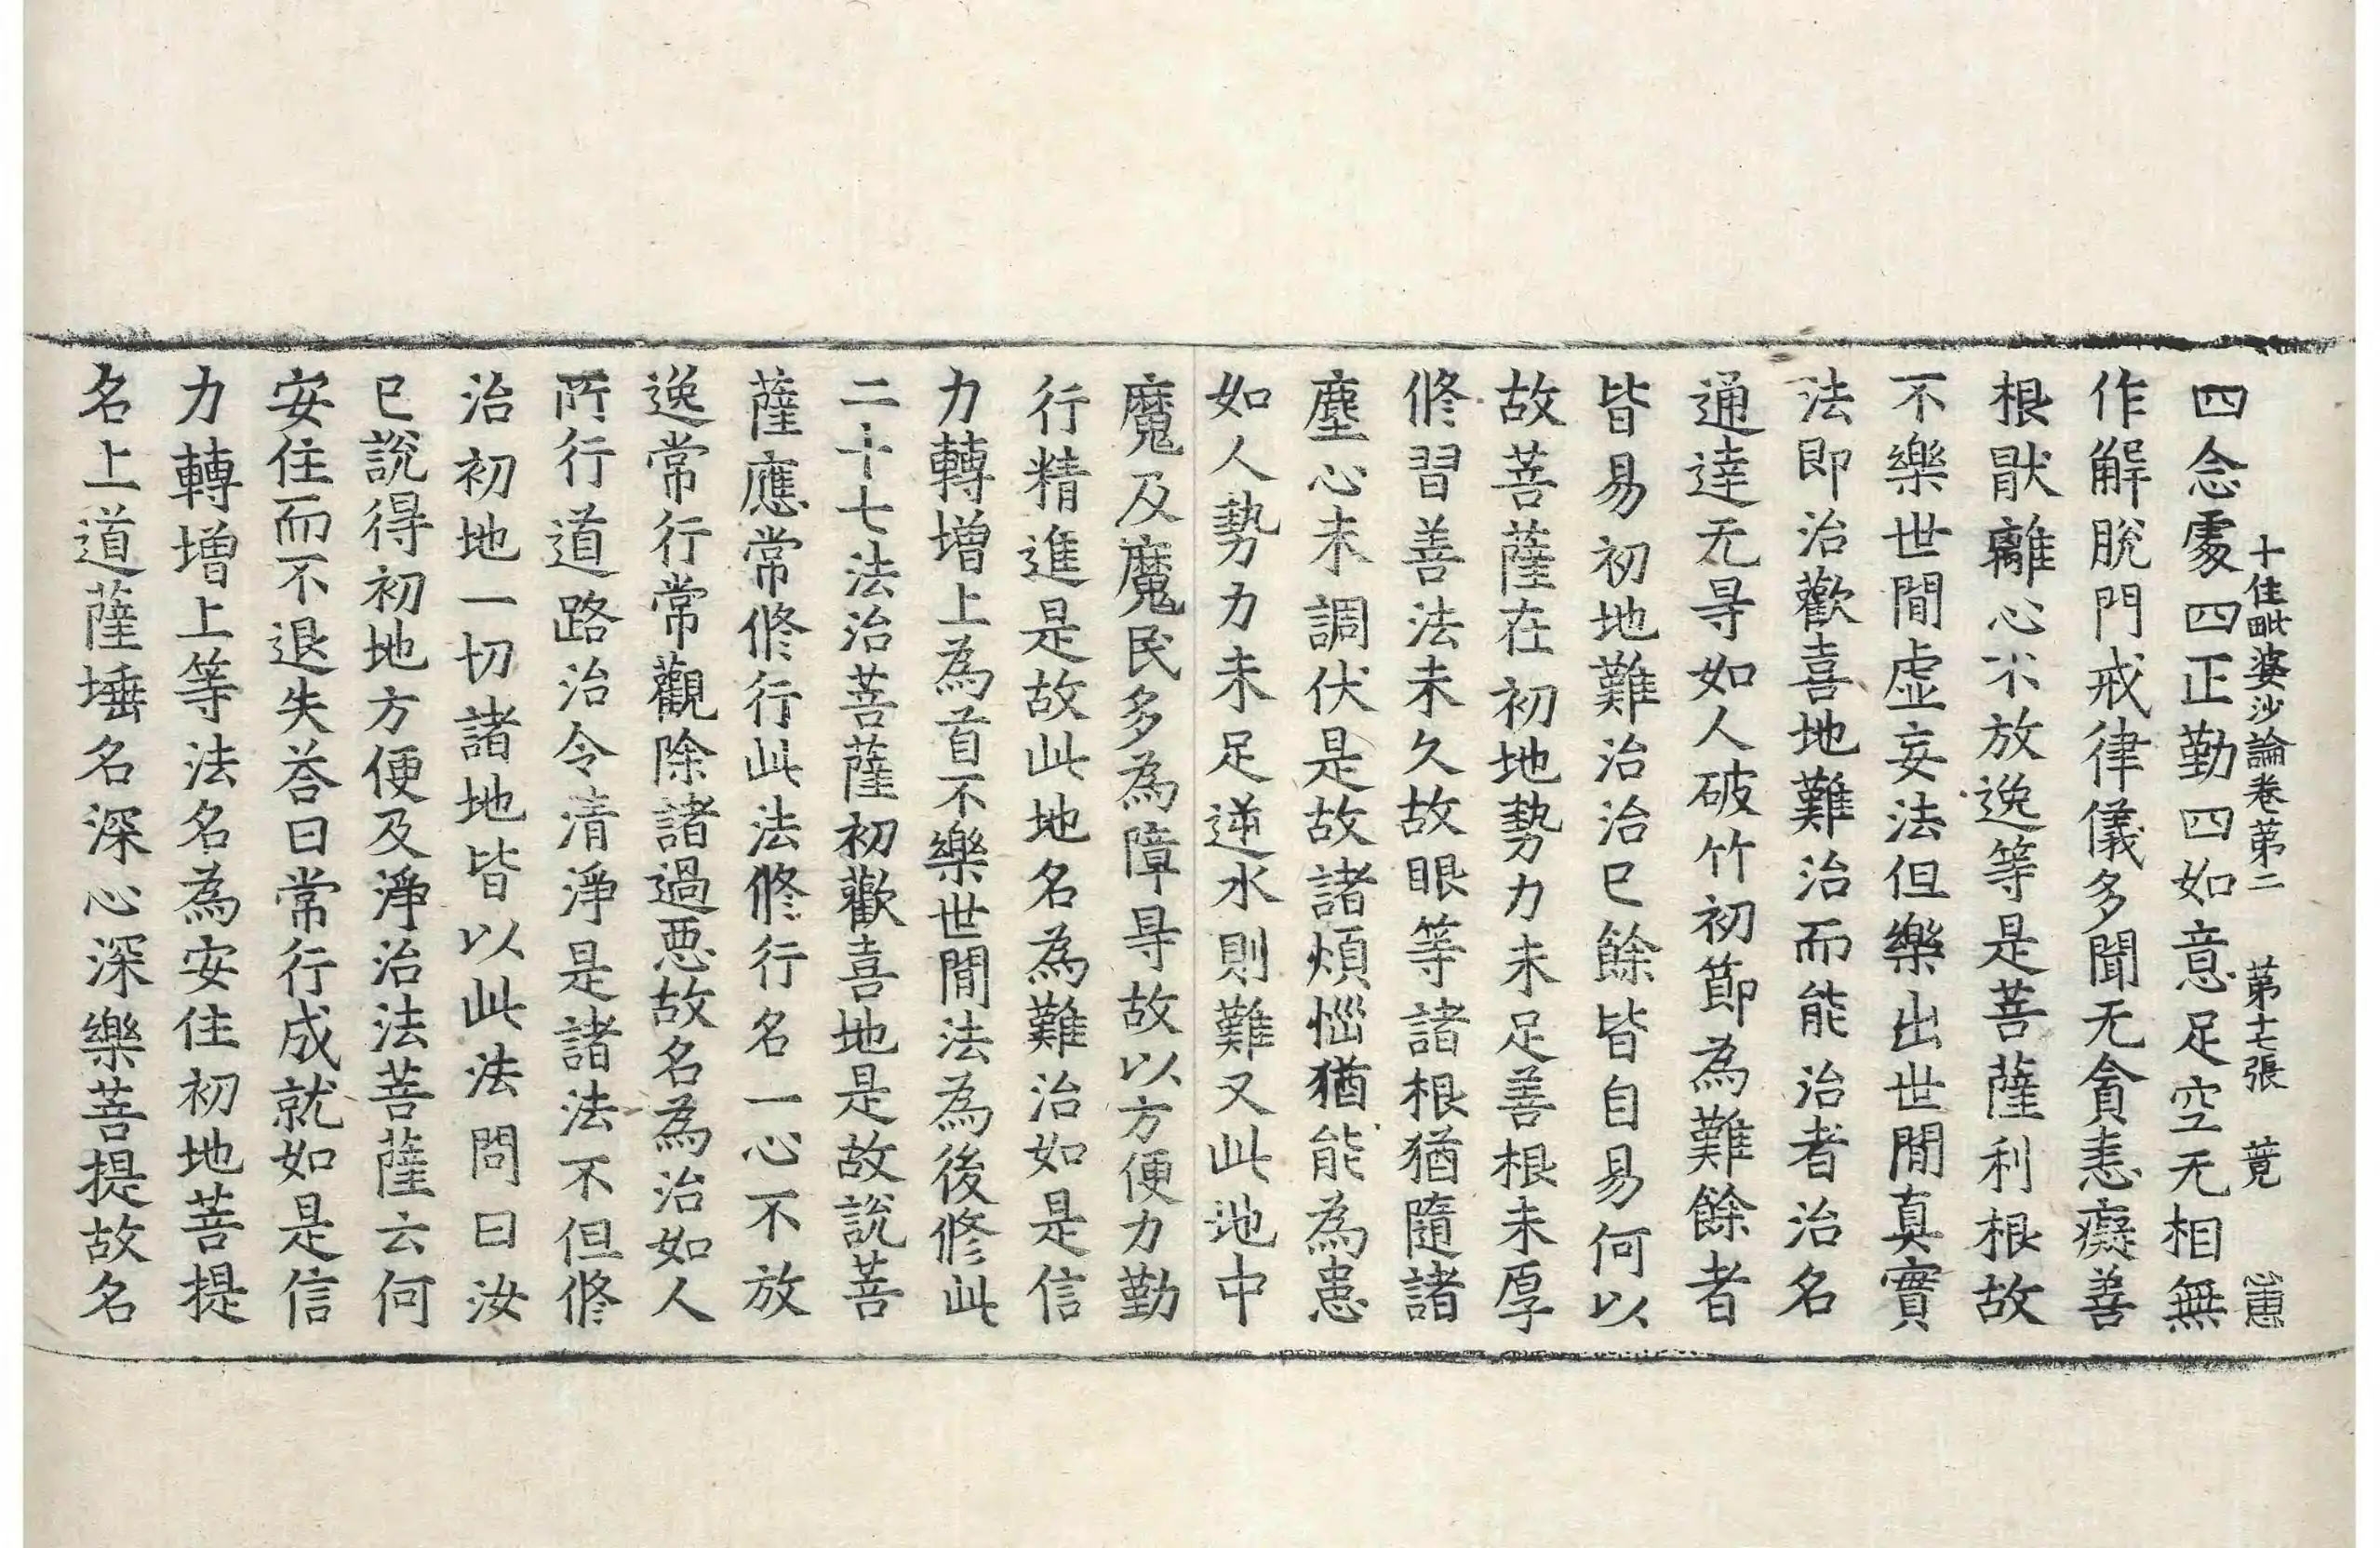 十住毗婆沙論卷第二　第十七張　竟
四念處四正勤四如意足空无相無
作解脫門戒律儀多聞无貪恚癡善
根猒離心不放逸等是菩薩利根故
不樂世間虛妄法但樂出世間真實
法即治歡喜地難治而能治者治名
通達无㝵如人破竹初節為難餘者
皆易初地難治治已餘皆自易何以
故菩薩在初地勢力未足善根未厚
修習善法未久故眼等諸根猶隨諸
塵心未調伏是故諸煩惱猶能為患
如人勢力未足逆水則難又此地中
魔及魔民多為障㝵故以方便力勤
行精進是故此地名為難治如是信
力轉增上為首不樂世間法為後修此
二十七法治菩薩初歡喜地是故說菩
薩應常修行此法修行名一心不放
逸常行常觀除諸過惡故名為治如人
所行道路治令清淨是諸法不但修
治初地一切諸地皆以此法問曰汝
已說得初地方便及淨治法菩薩云何
安住而不退失荅曰常行成就如是信
力轉增上等法名為安住初地菩提
名上道薩埵名深心深樂菩提故名